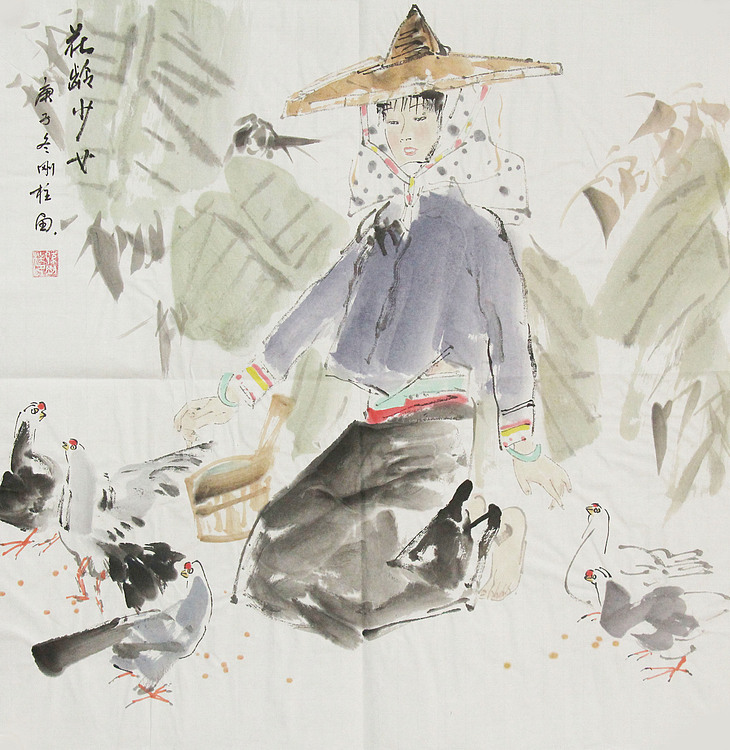 花龄少女
庚子冬刚柱画